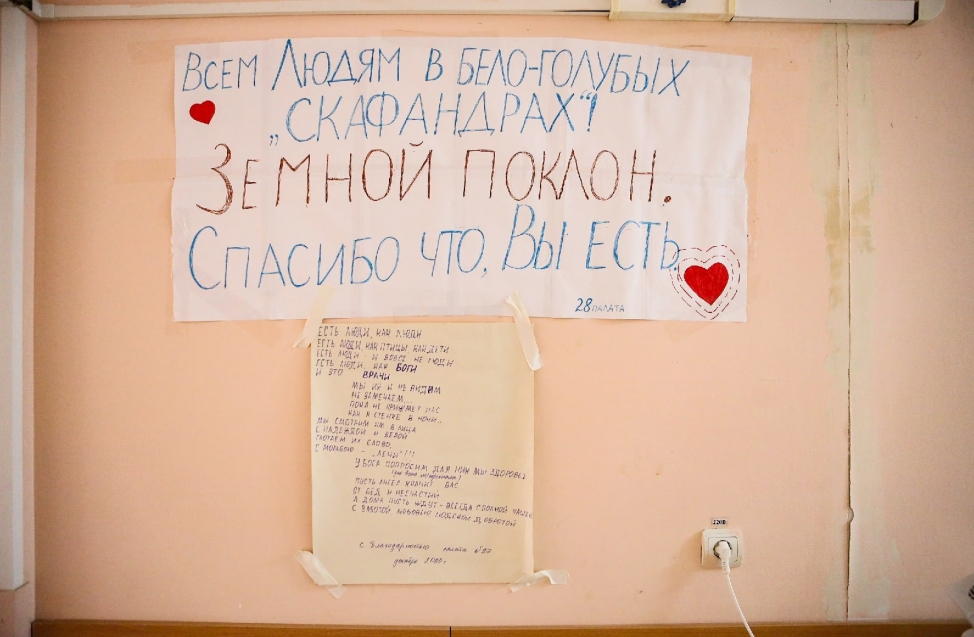 ВСЕМ ЛЮДЯМ В БЕЛО-ГОЛУБЫХ
„СКАФАНДРАХ“!
ЗЕМНОЙ ПОКЛОН.
СПАСИБО ЧТО, ВЫ ЕСТЬ.
28 ПАЛАТА
ЕСТЬ ЛЮДИ, КАК ЛЮДИ
ЕСТЬ ЛЮДИ, КАК ПТИЦЫ, КАК ДЕТИ
ЕСТЬ ЛЮДИ - И ВОВСЕ НЕ ЛЮДИ
ЕСТЬ ЛЮДИ, КАК БОГИ
И ЭТО ВРАЧИ
МЫ ИХ И НЕ ВИДИМ
НЕ ЗАМЕЧАЕМ...
ПОКА НЕ ПРИЖМЕТ НАС
КАК К СТЕНКЕ В НОЧИ..
МЫ СМОТРИМ ИМ В ЛИЦА
С НАДЕЖДОЙ И ВЕРОЙ
ГЛОТАЕМ ИХ СЛОВО,
С МОЛЬБОЮ - „ЛЕЧИ“!!!
У БОГА ПОПРОСИМ ДЛЯ НИХ МЫ ЗДОРОВЬЯ
ПУСТЬ АНГЕЛ ХРАНИТ ВАС
ОТ БЕД И НЕСЧАСТИЙ
А ДОМА ПУСТЬ ЖДУТ - ВСЕГДА С ПОЛНОЙ ЧАШЕЙ
С ЗАБОТОЙ ЛЮБОВЬЮ ДОБРОТОЙ
С Благодарностью палата №27
декабрь
220В